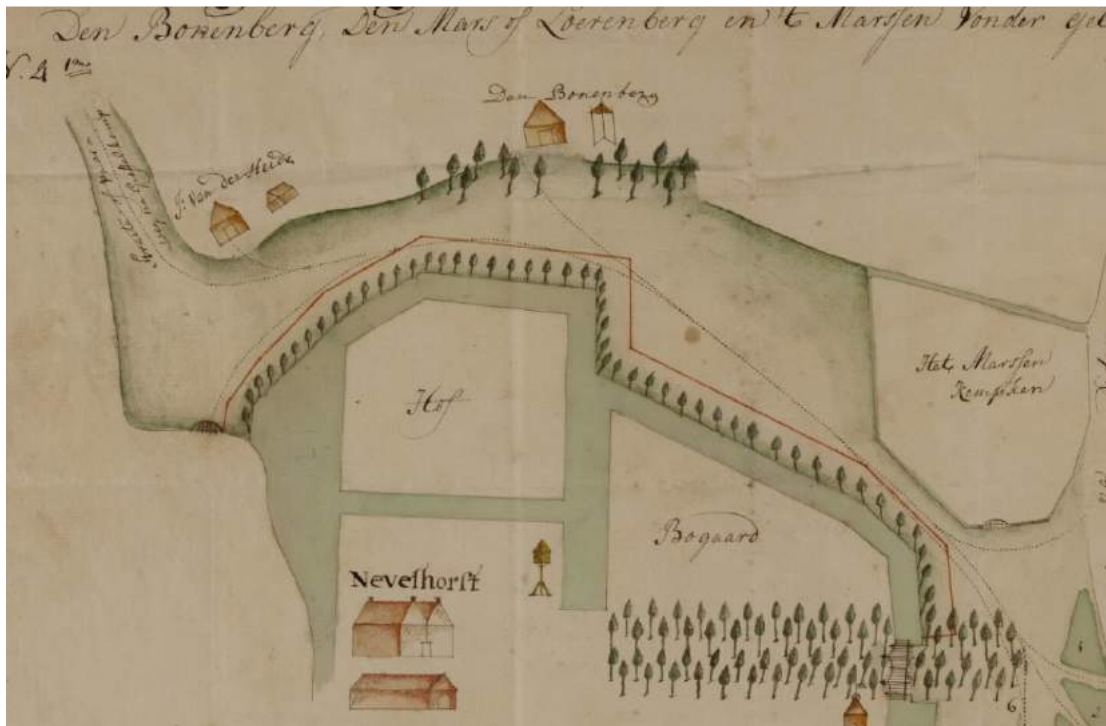 Den Bonenberg, Den Mars of Loerenberg en 't Marssen Vonder
N. 4 1mo
Den Bonenberg
J. Van der Heide
Het Marssen
Kempken
Hof
Bogaard
Neveshorst
6